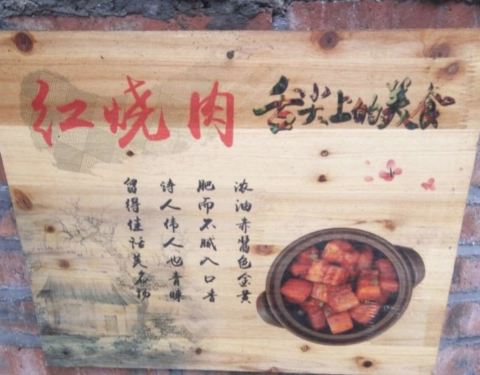 红烧肉
舌尖上的美食
浓油赤醬色金黄
肥而不腻入口香
诗人伟人也青睐
留得佳话美名扬